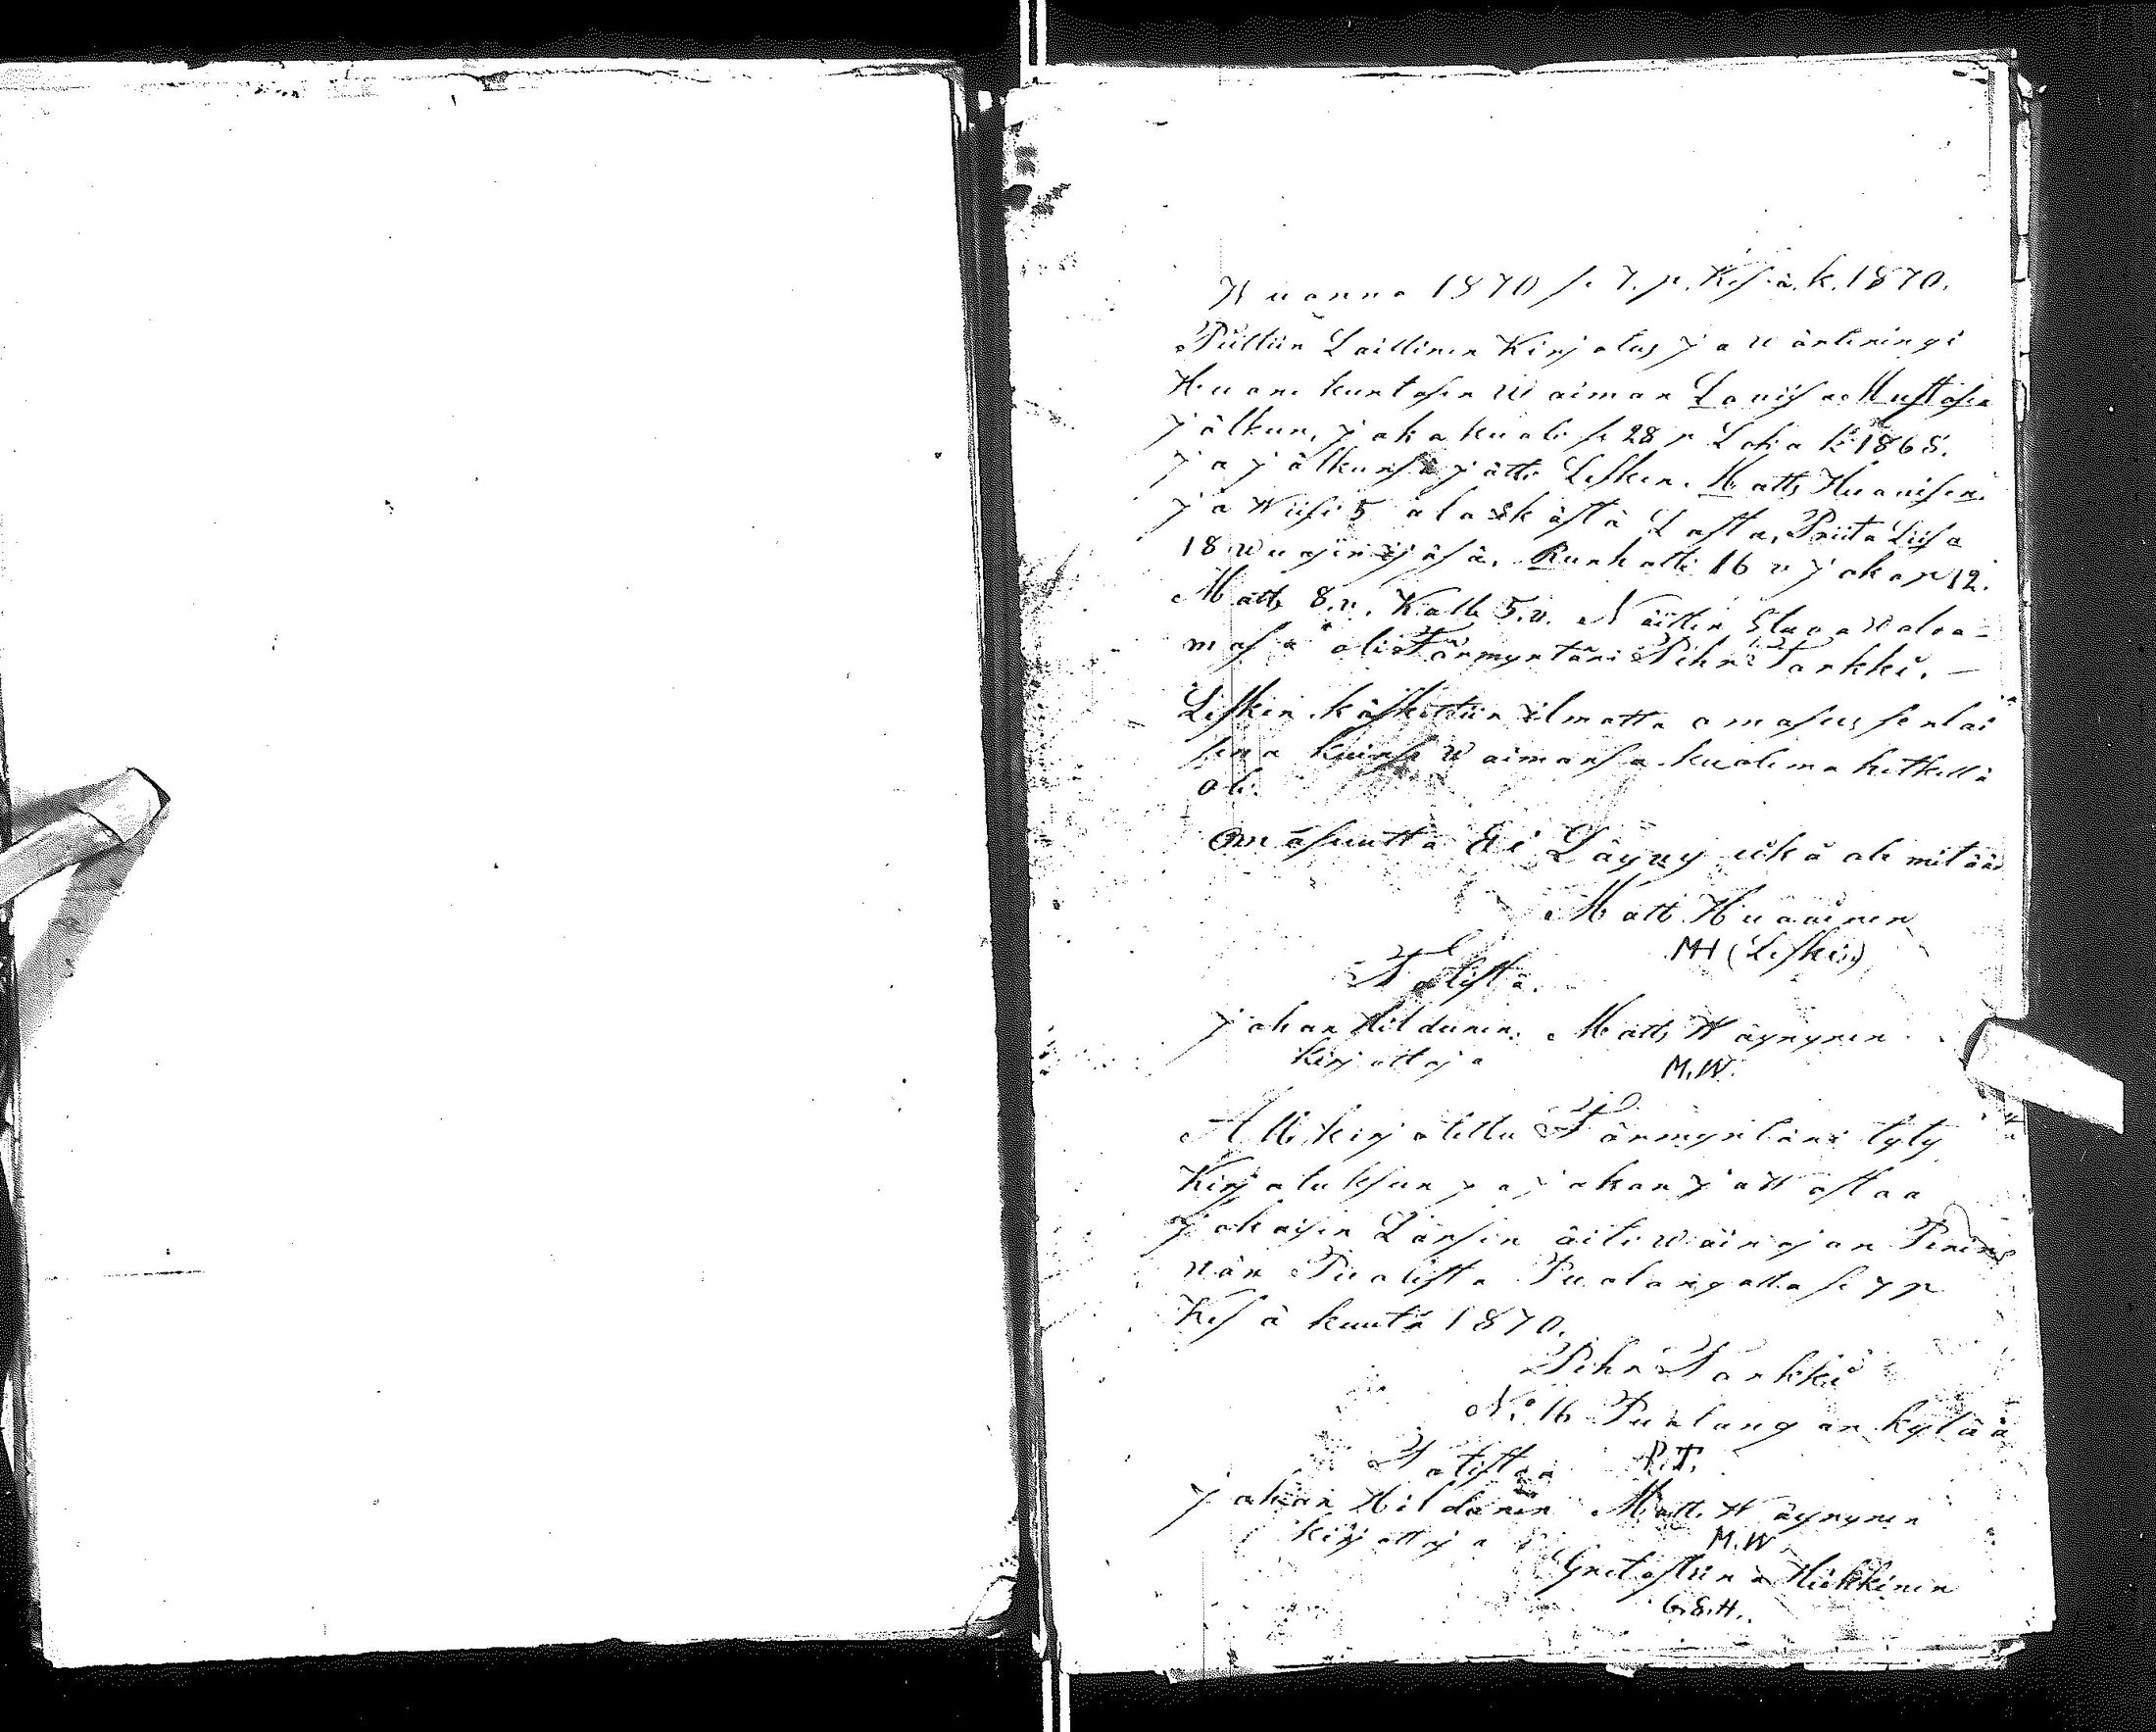 Wuonna 1870 se 7. p. Kesä.k. 1870.
Pittiin Laillinen Kirjotus ja wärteringi
Huonekuntasen Waiman Loviisa Mustosen
jälkeen, joka kuoli se 28 p Loka k 1868.
ja jälkensä jätti Lesken. Matts Huovisen.
ja Wiisi 5 alaikästä Lasta, Priita Liisa
18 wuojen ijäsä. Runhatti 16 v johan 12.
Matts 8.v. Kalle 5.v. Näitten Etua walwa-
masa oli Färmyntäri Pehr Tarkki. —
Lesken käskettiin ilmotta omasus senlai
sena kuin se Waimonsa kuolema hetkellä
oli.
Omasuutta Ei Läyvy eikä ole mitään
Matts Huovinen
MH (Leski)
Totista.
johan Kildunen. Matts Wäyrynen
Kirjottaja M.W.
Allekirjotettu Färmyntäri tyty
Kirjotuksen ja jakon jätt ostaa
jokaisen Lansen äitiwainajan Perin
nän Puolesta Puolangalla se 7 p
Kesäkuuta 1870.
Pehr Tarkki
No 16 Puolangan kylää
Totistaa P.T.
johan Kildunen Matts Wäyrynen
kirjottaja M.W.
Greta Stiina Heikkinen
G.S.H.